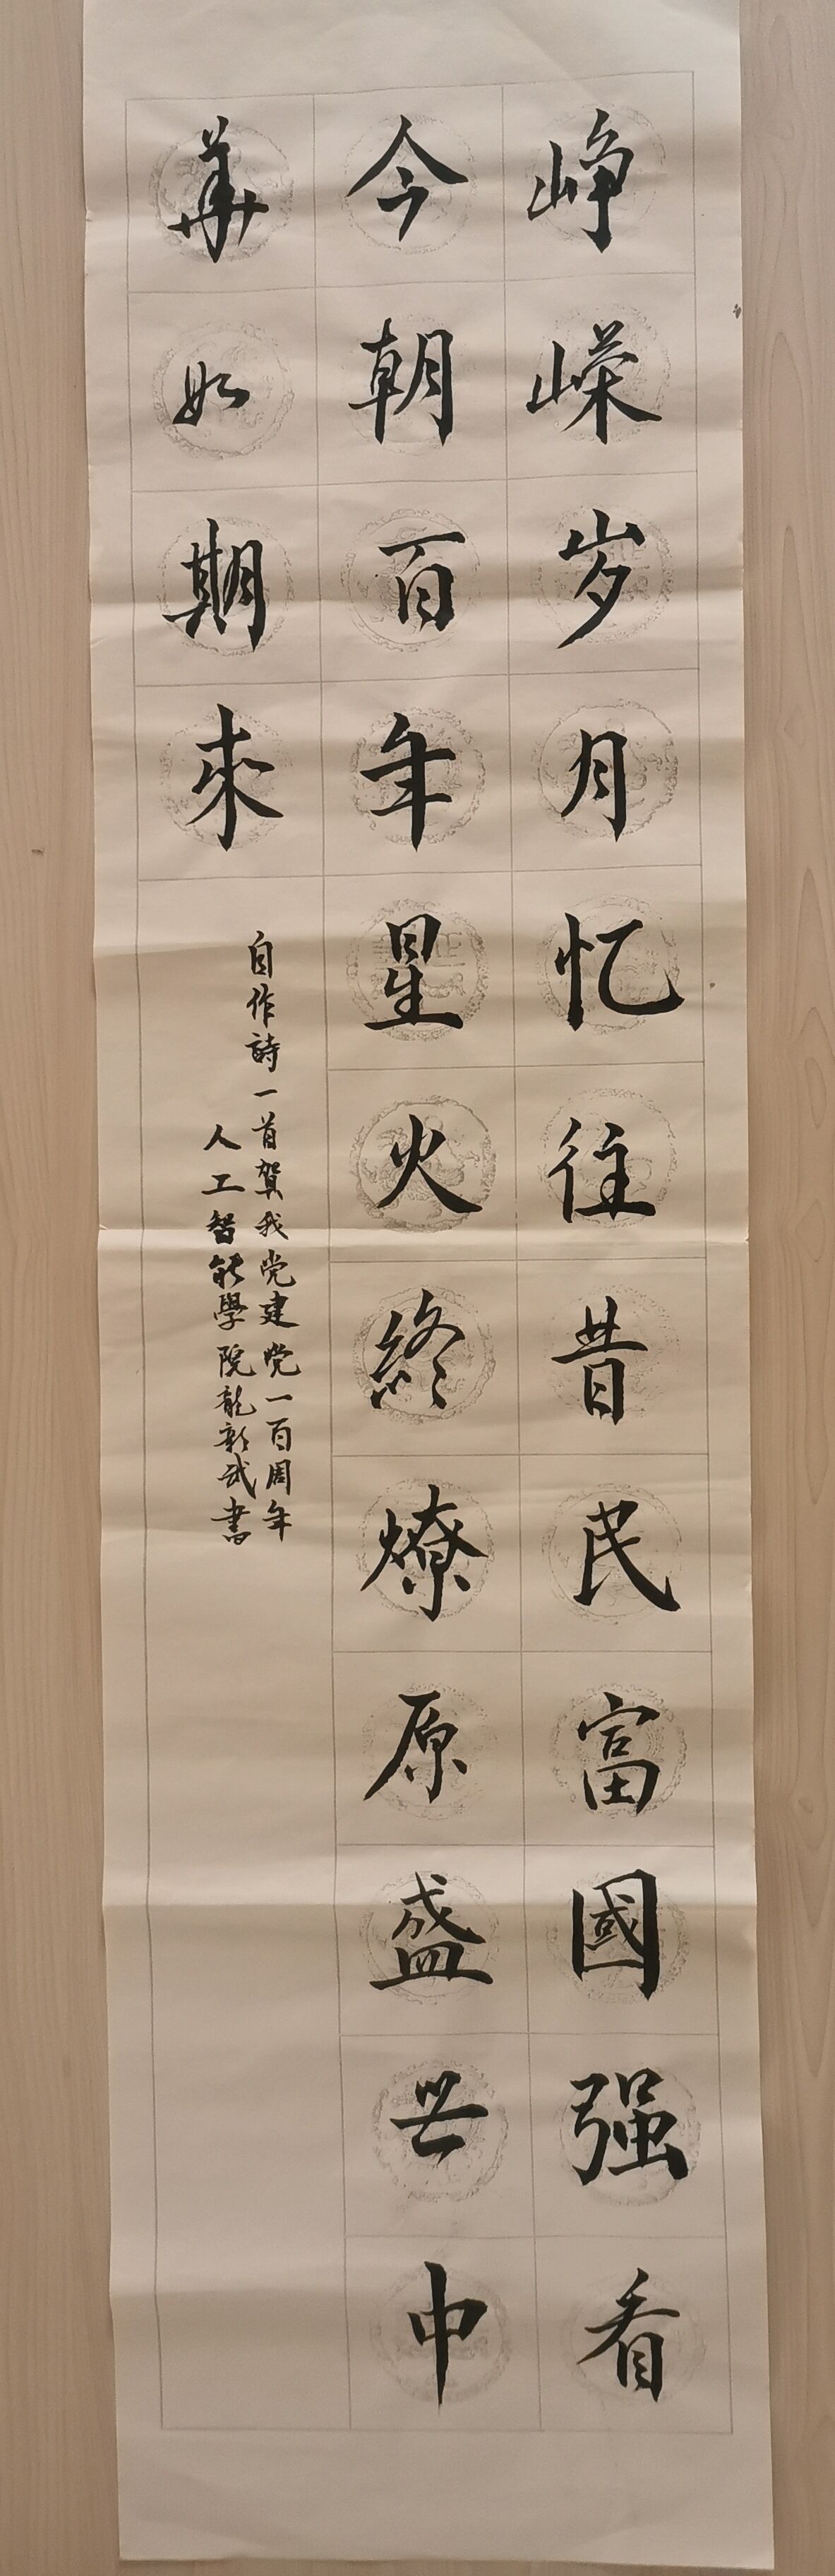 峥嵘岁月忆往昔民富國强看
今朝百年星火終燎原盛世中
華如期來
自作詩一首賀我党建党一百周年
人工智能學院龍彰武書